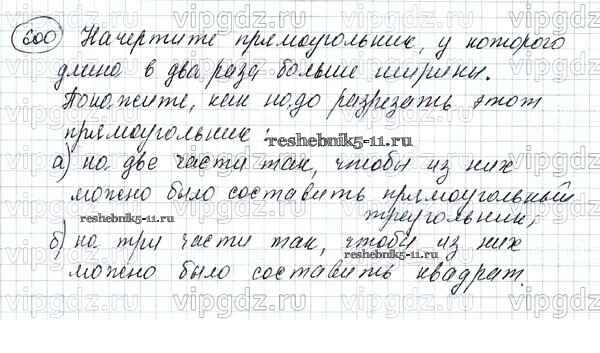 600 Начертите прямоугольник, у которого
длина в два раза больше ширины.
Покажите, как надо разрезать этот
прямоугольник:
reshebnik5-11.ru
а) на две части так, чтобы из них
можно было составить прямоугольный
треугольник;
reshebnik5-11.ru
б) на три части так, чтобы из них
можно было составить квадрат.
reshebnik5-11.ru
vipgdz.ru